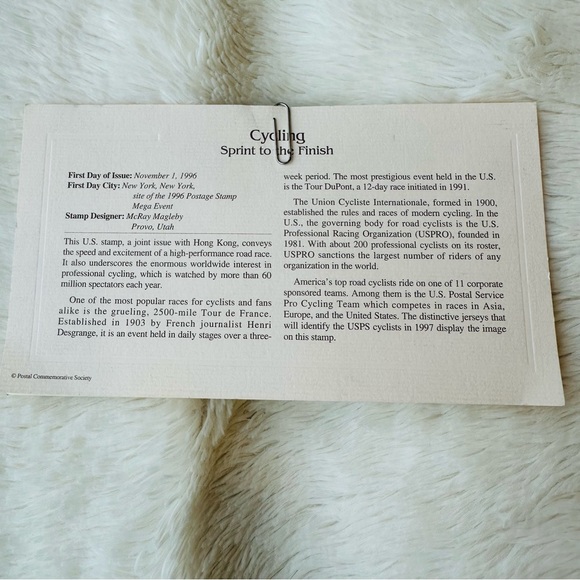 Cycling
Sprint to the Finish
First Day of Issue: November 1, 1996
First Day City: New York, New York,
site of the 1996 Postage Stamp
Mega Event
Stamp Designer: McRay Magleby
Provo, Utah
This U.S. stamp, a joint issue with Hong Kong, conveys
the speed and excitement of a high-performance road race.
It also underscores the enormous worldwide interest in
professional cycling, which is watched by more than 60
million spectators each year.
One of the most popular races for cyclists and fans
alike is the grueling, 2500-mile Tour de France.
Established in 1903 by French journalist Henri
Desgrange, it is an event held in daily stages over a three-
week period. The most prestigious event held in the U.S.
is the Tour DuPont, a 12-day race initiated in 1991.
The Union Cycliste Internationale, formed in 1900,
established the rules and races of modern cycling. In the
U.S., the governing body for road cyclists is the U.S.
Professional Racing Organization (USPRO), founded in
1981. With about 200 professional cyclists on its roster,
USPRO sanctions the largest number of riders of any
organization in the world.
America's top road cyclists ride on one of 11 corporate
sponsored teams. Among them is the U.S. Postal Service
Pro Cycling Team which competes in races in Asia,
Europe, and the United States. The distinctive jerseys that
will identify the USPS cyclists in 1997 display the image
on this stamp.
© Postal Commemorative Society